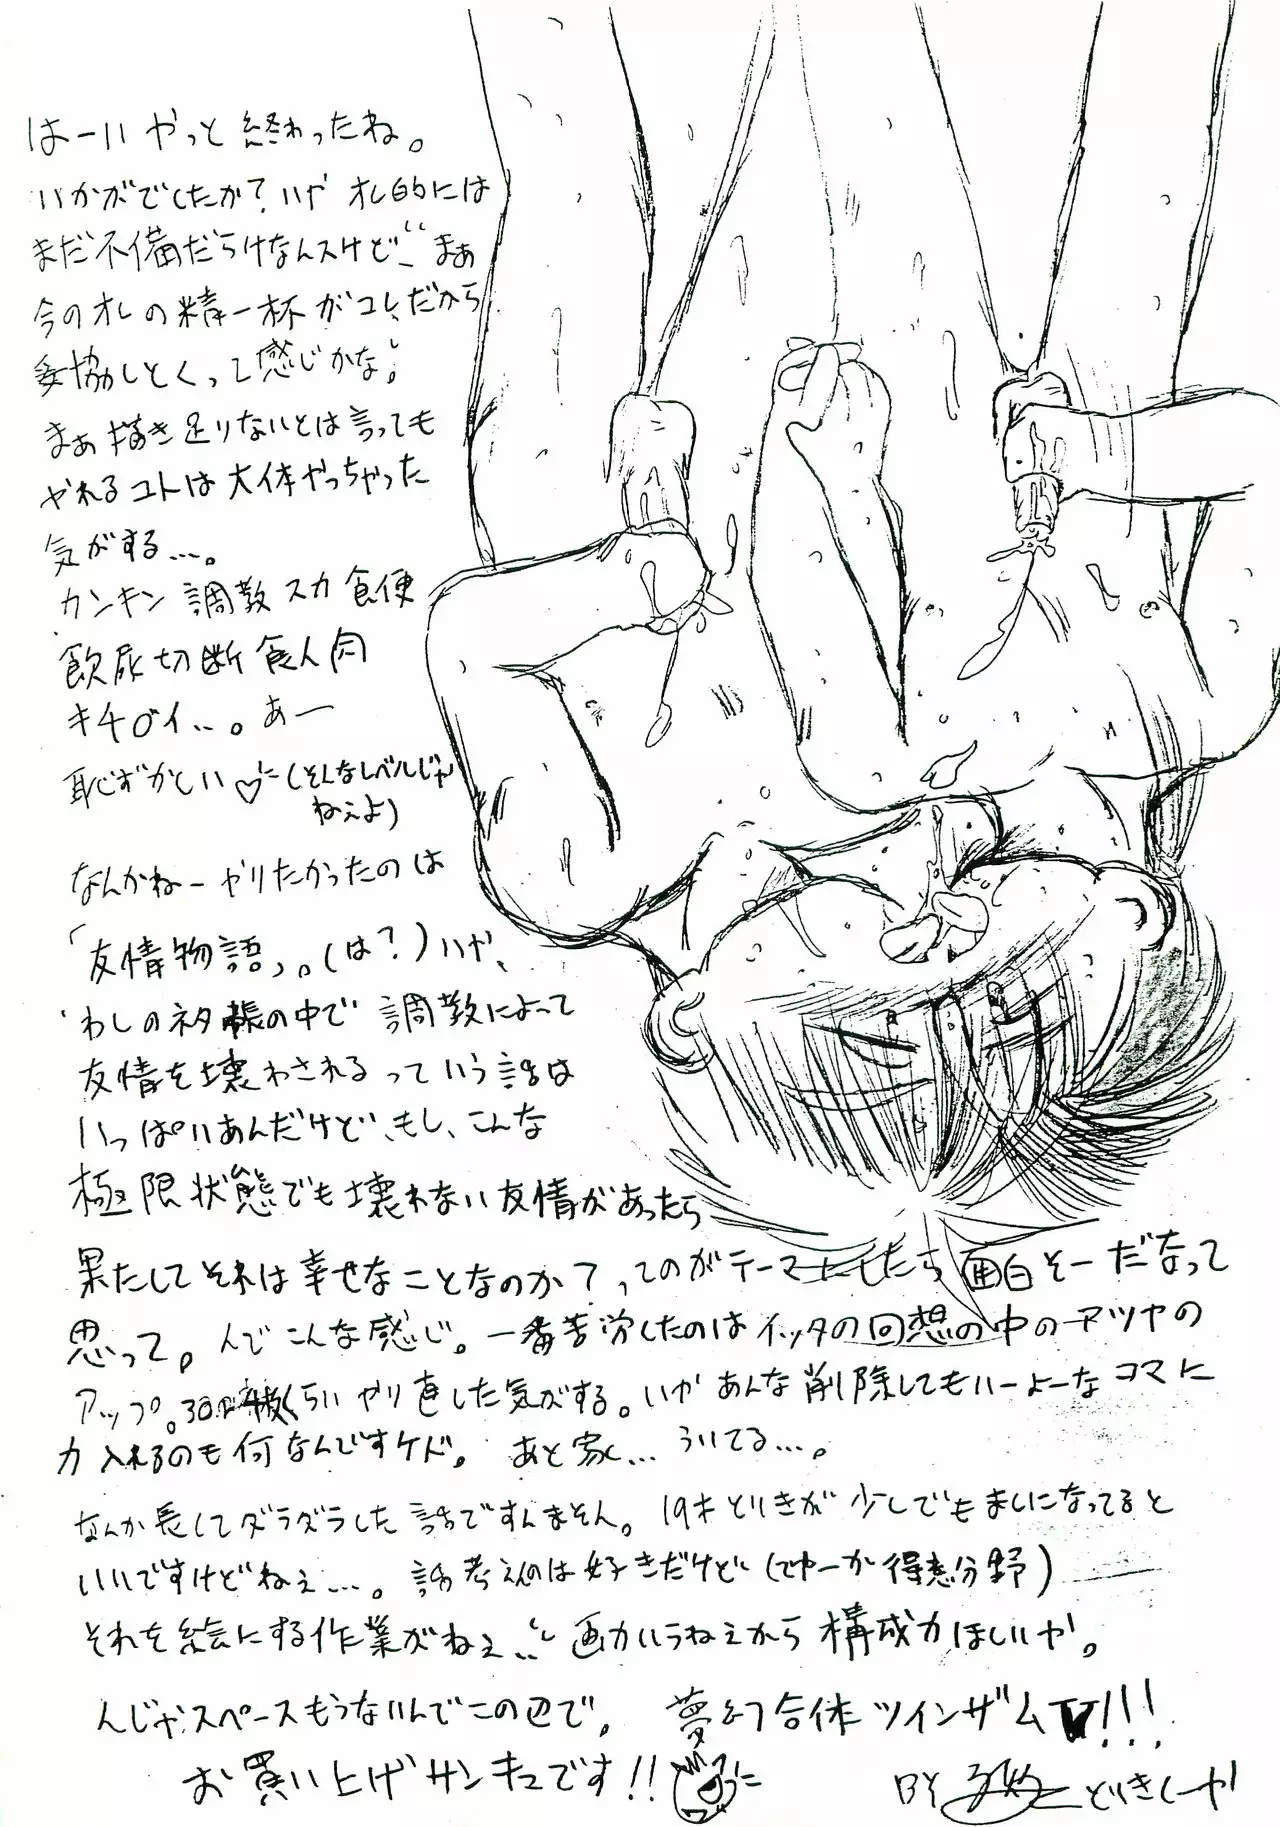 はーい やっと終わったね。
いかがでしたか? いや オレ的には
まだ不備だらけなんスけど まぁ
今のオレの精一杯がコレだから
妥協しとくって感じかな。
まぁ描き足りないとは言っても
やれるコトは大体やっちゃった
気がする…。
カンキン 調教 スカ 食便
飲尿 切断 食人肉
キチ○イ…。あー
恥ずかしい♡(そんなレベルじゃ
ねぇよ)
なんかねーやりたかったのは
「友情物語」。(は?)いや、
わしのネタ帳の中で 調教によって
友情を壊わされるっていう話は
いっぱいあんだけど、もし、こんな
極限状態でも壊れない友情があったら
果たしてそれは幸せなことなのか?ってのがテーマにしたら面白そーだなって
思って。んでこんな感じ。一番苦労したのはイッタの回想の中のアツヤの
アップ。30枚くらいやり直した気がする。いや あんな削除してもいーよーなコマに
力入れるのも何なんですケド。あと家… ういてる…。
なんか長してダラダラした話ですんません。19才とりきが少しでもましになってると
いいですけどねぇ…。話考えんのは好きだけど(てゆーか得意分野)
それを絵にする作業がねぇ… 画力いらねぇから構成力ほしいや。
んじゃスペースもうないんでこの辺で。 夢幻合体ツインザムV!!!
お買い上げサンキューです!!
BY とりきしーや